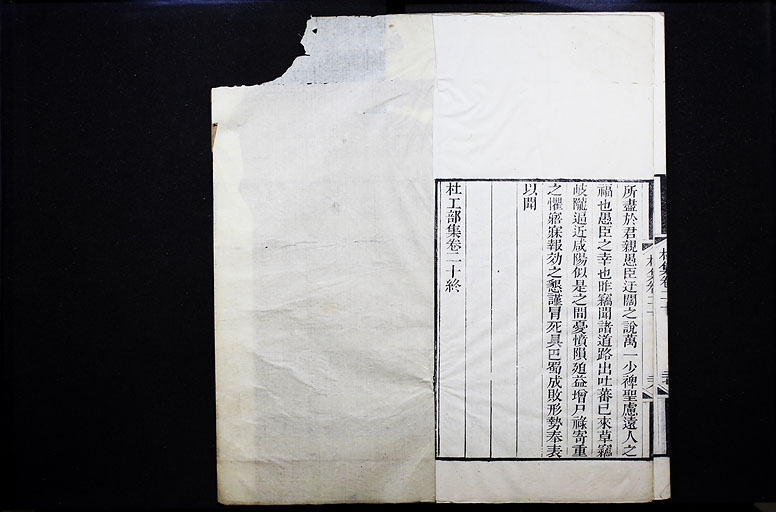 所盡於君親愚臣迂闊之說萬一少裨聖慮遠人之
福也愚臣之幸也昨竊聞諸道路出吐蕃已來草竊
岐隴逼近咸陽似是之間憂憤隕迫益增尸祿寄重
之懼寤寐報効之懇謹冒死具巴蜀成敗形勢奉表
以聞
杜工部集卷二十終